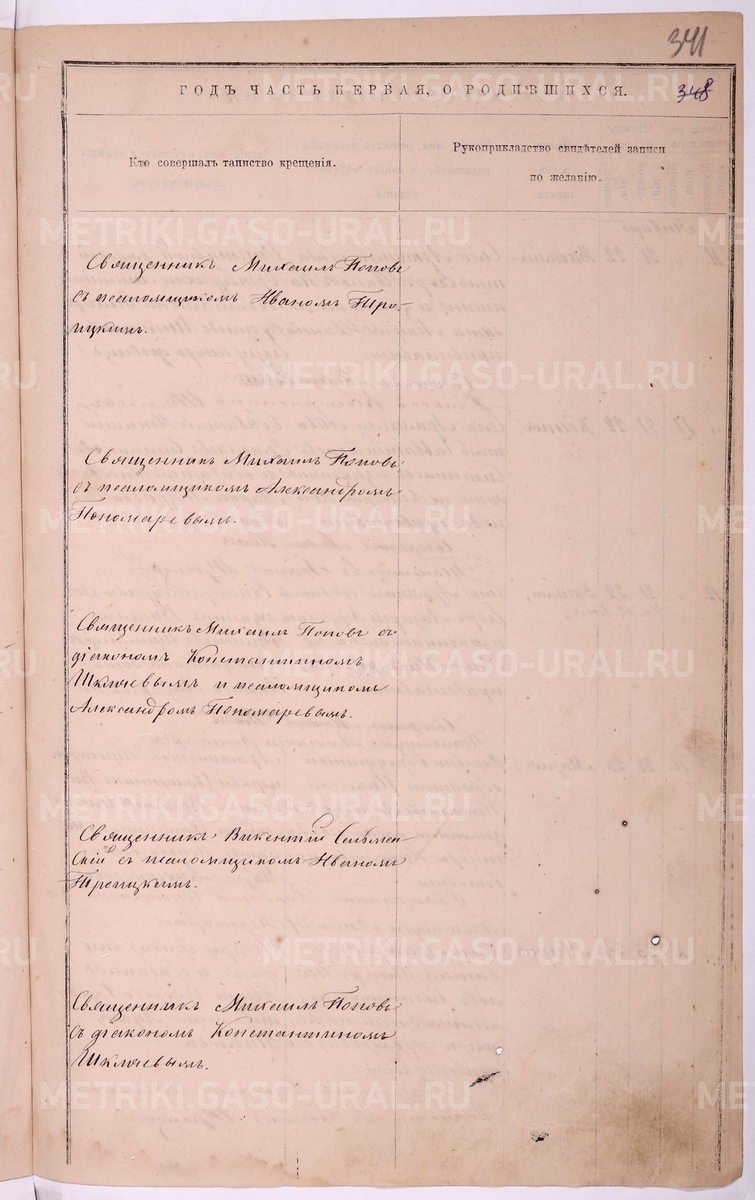 341
ГОДЪ ЧАСТЬ ПЕРВАЯ, О РОДИВШИХСЯ.
348
Кто совершалъ таинство крещенія.
Рукоприкладство свидѣтелей записи
по желанію.
Священникъ Михаилъ Поповъ
съ псаломщикомъ Иваномъ Тро-
ицкимъ.
Священникъ Михаилъ Поповъ
съ псаломщикомъ Александромъ
Пономаревымъ.
Священникъ Михаилъ Поповъ съ
діакономъ Константиномъ
Шкляевымъ и псаломщикомъ
Александромъ Пономаревымъ.
Священникъ Викентій Сельмен-
скій съ псаломщикомъ Иваномъ
Троицкимъ.
Священникъ Михаилъ Поповъ
съ діакономъ Константиномъ
Шкляевымъ.
METRIKI.GASO-URAL.RU